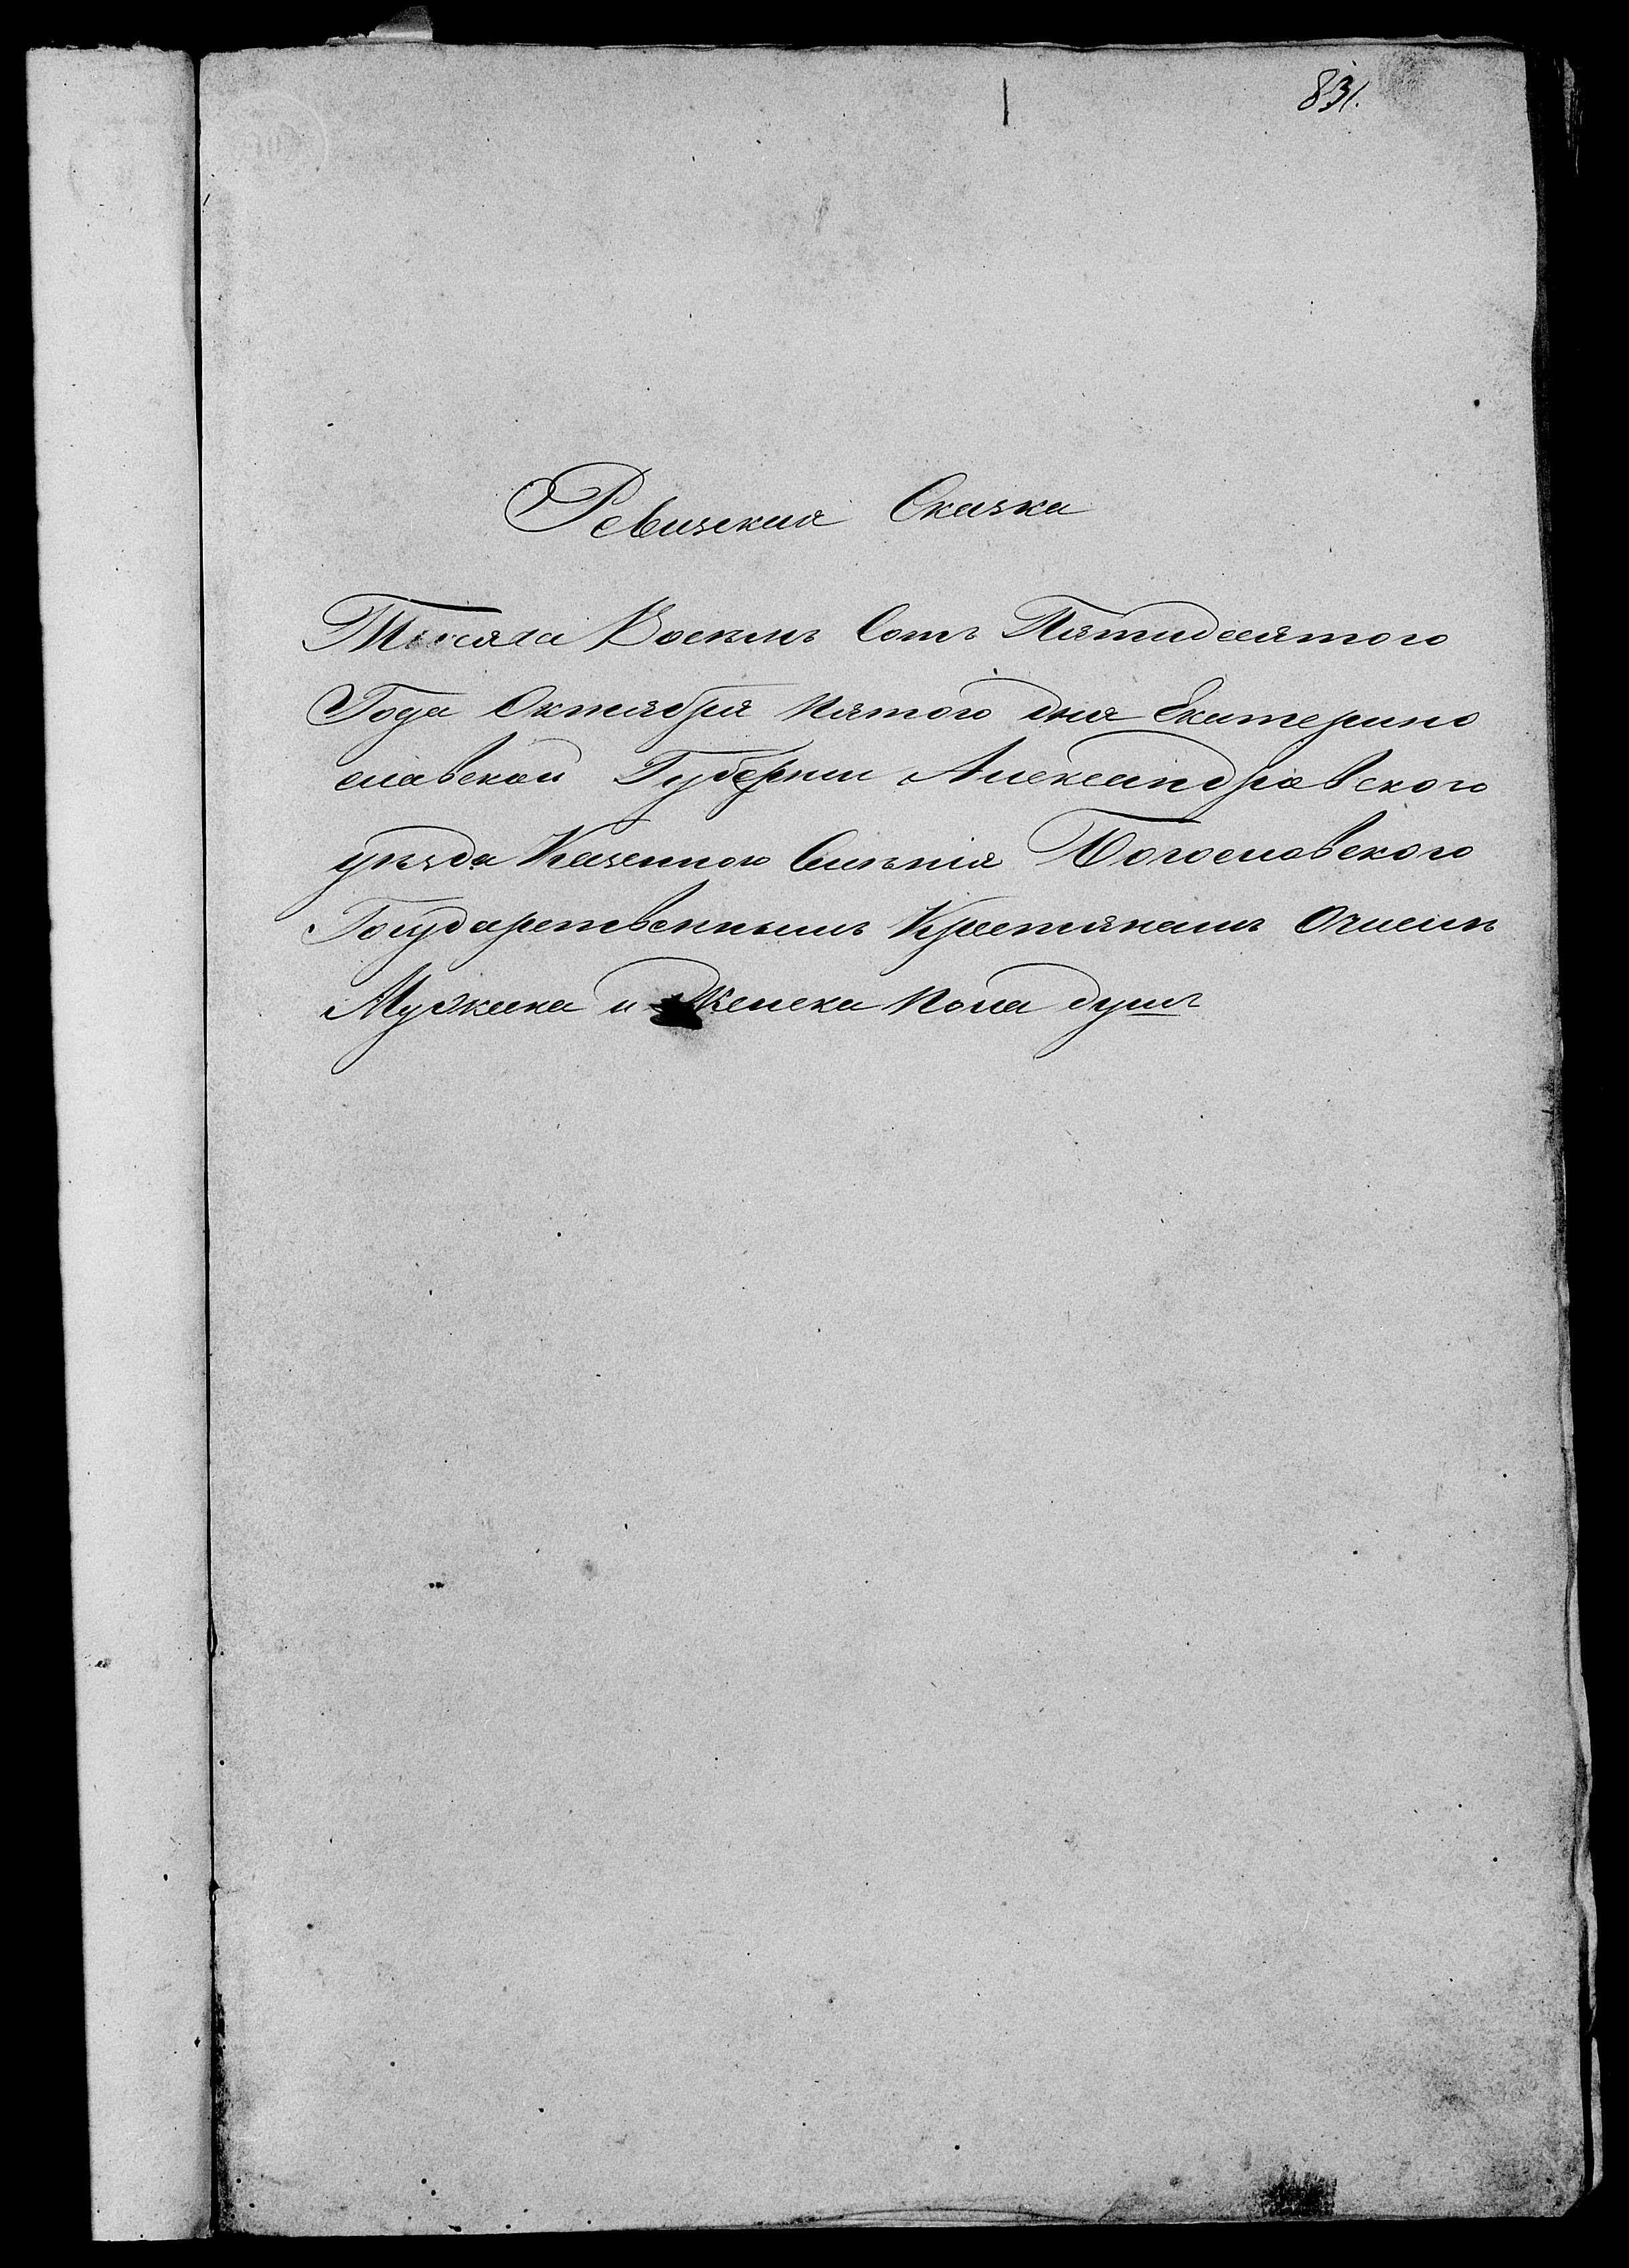 831.
Ревизская Сказка
Тысяча Восемь Сотъ Пятидесятого
Года Октября пятого дня Екатерино
славской Губернии Александровского
уѣзда Казенного Сѣленія Богословского
Государственнымъ Крестянамъ О числѣ
Мужеска и Женска пола душъ